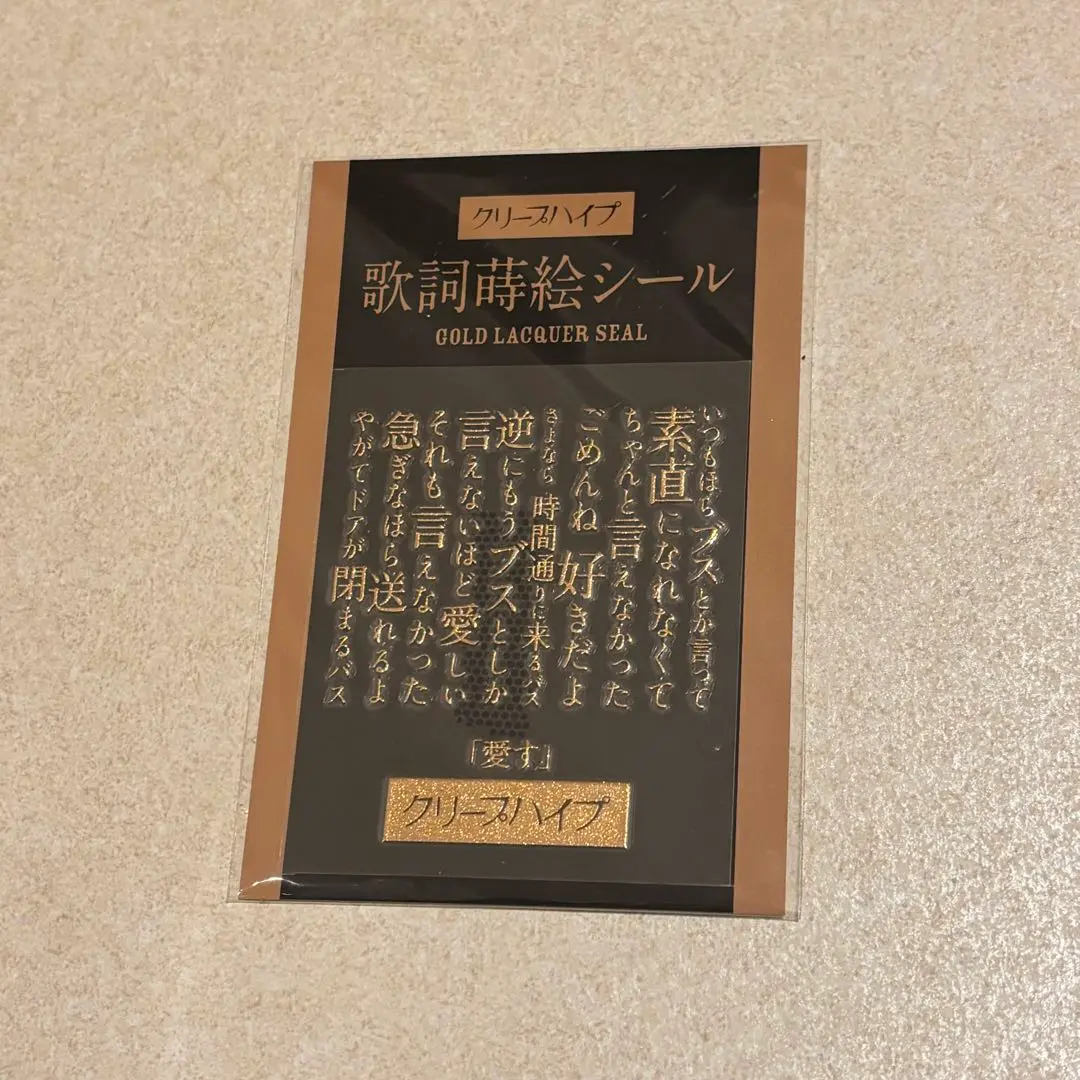 クリープハイプ
歌詞蒔絵シール
GOLD LACQUER SEAL
いつもほらブスとか言って
素直になれなくて
ちゃんと言えなかった
ごめんね 好きだよ
さよなら 時間通りに来るバス
逆にもうブスとしか
言えないほど愛しい
それも言えなかった
急ぎなほら送れるよ
やがてドアが閉まるバス
「愛す」
クリープハイプ